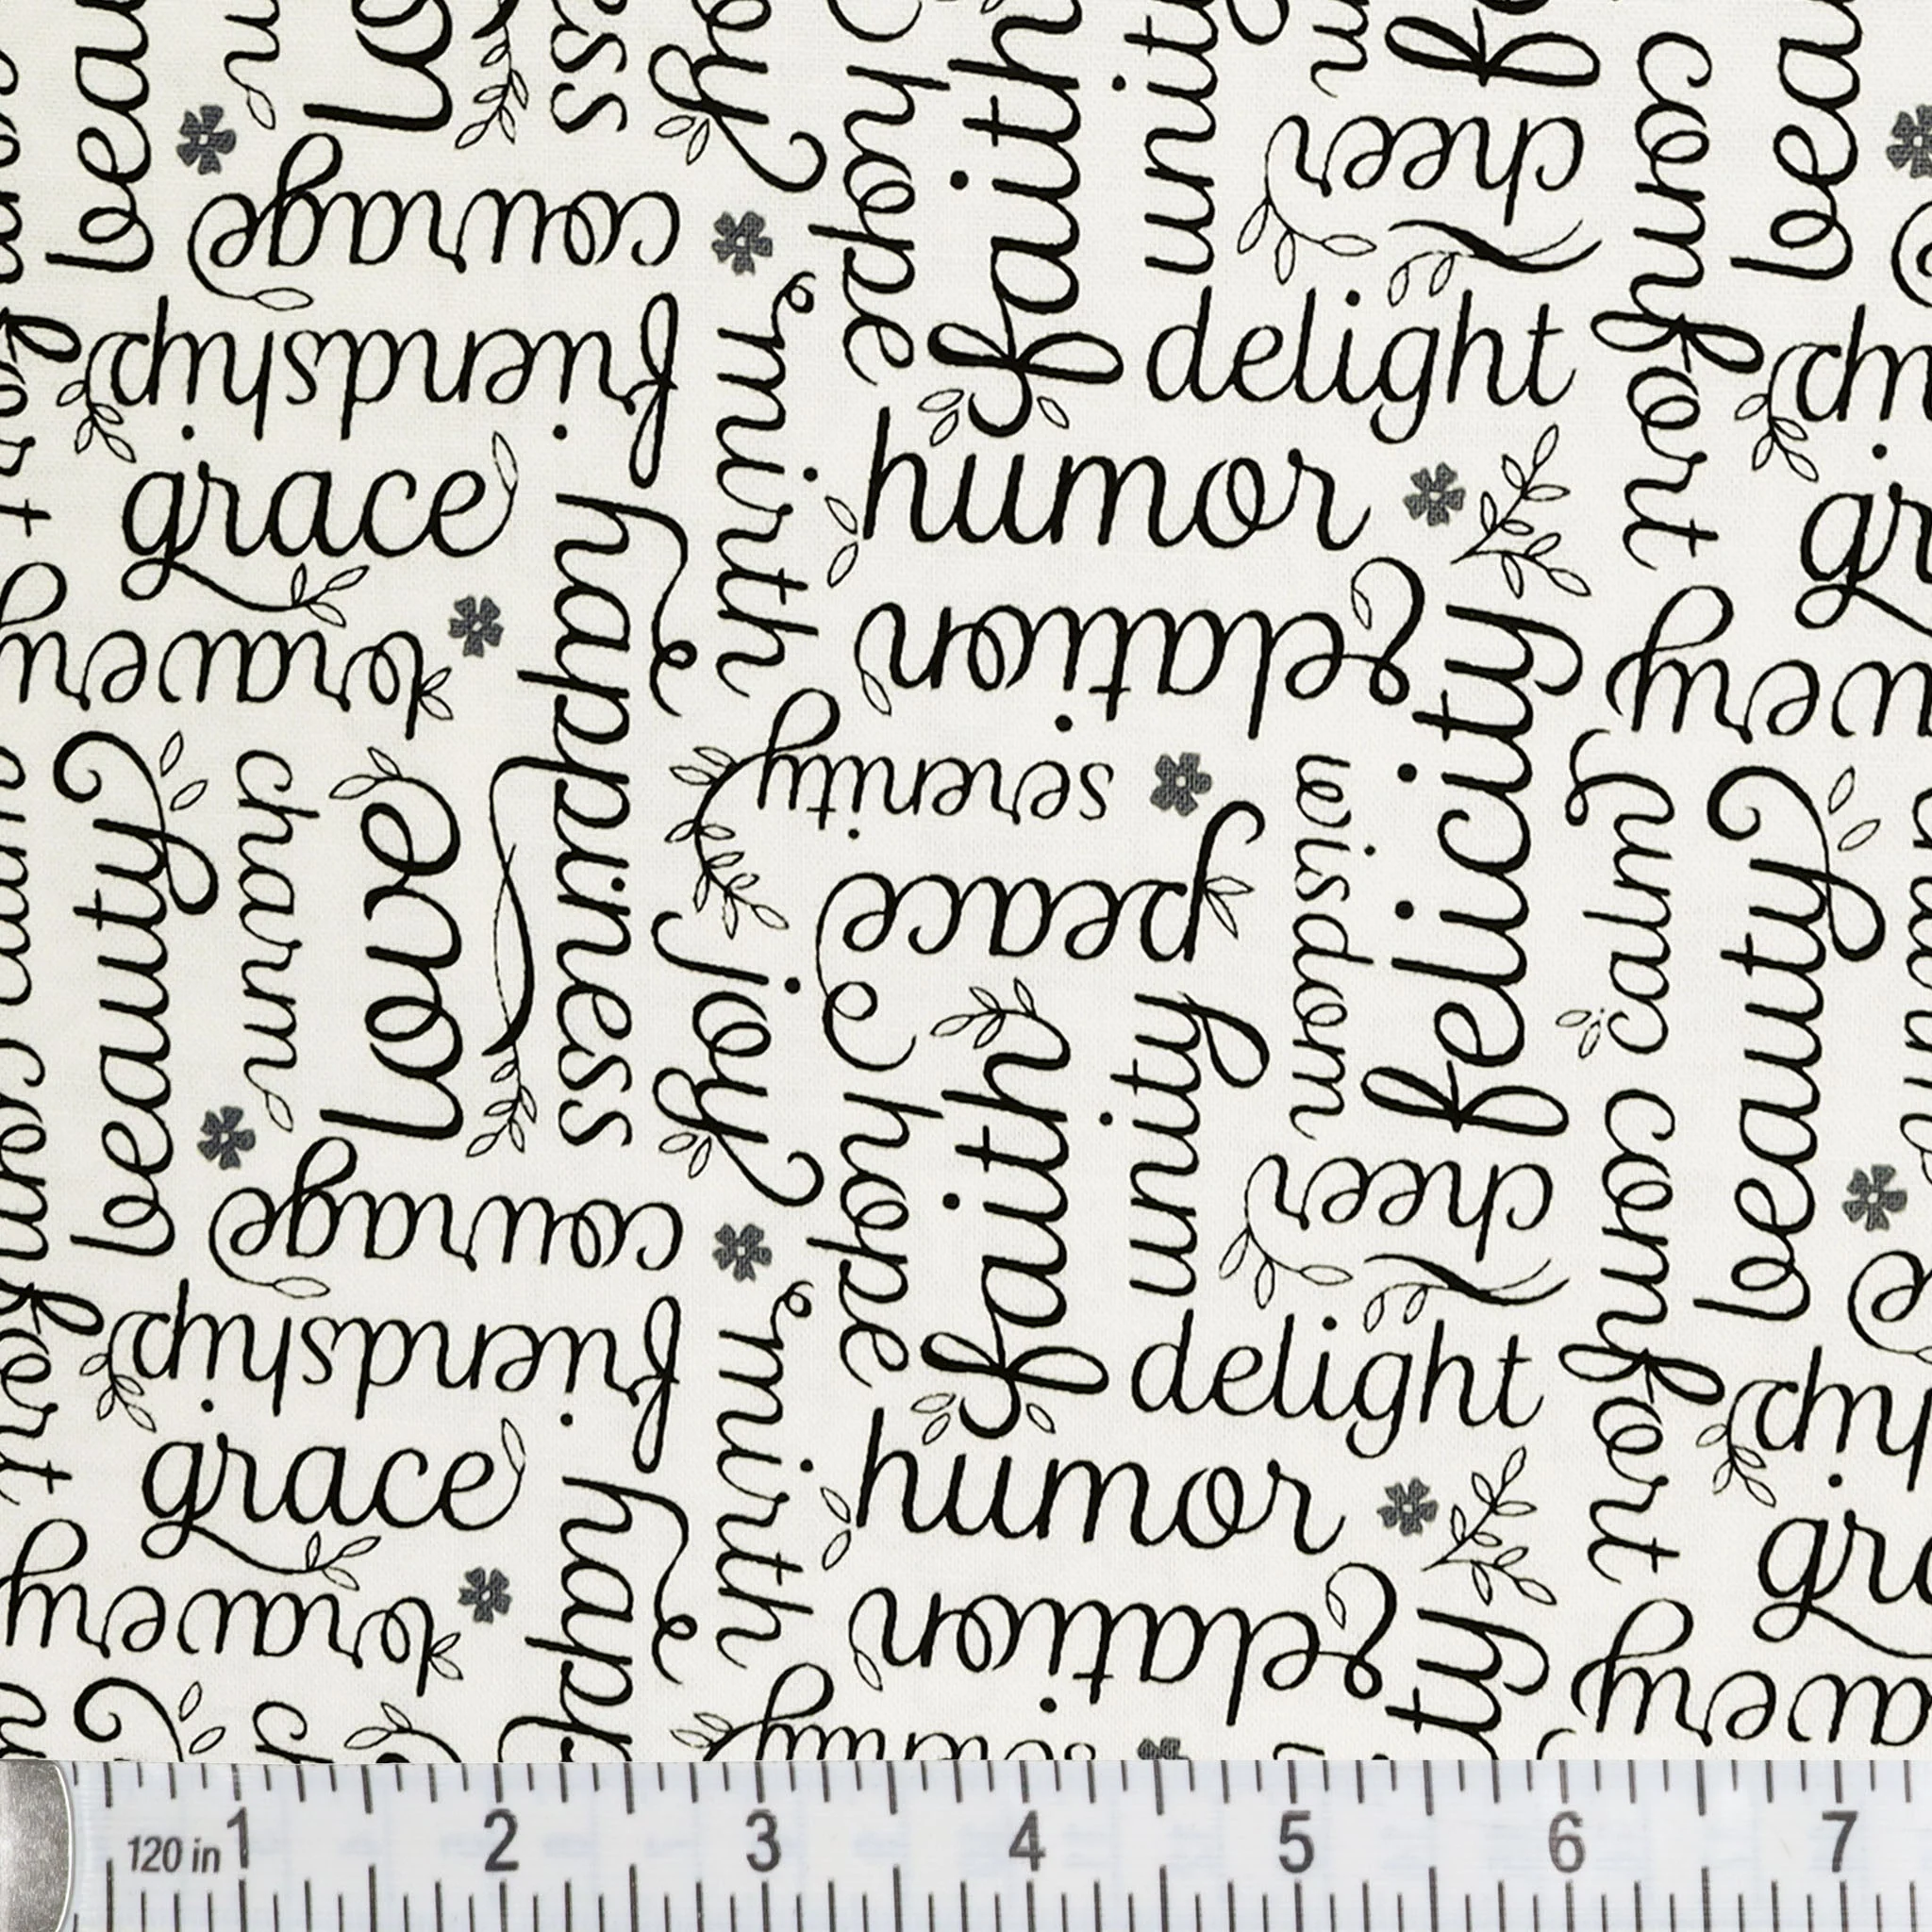 beau
courage
friendship
grace
bravery
mirth
hope
faith
unity
cheer
delight
humor
elation
comfort
bea
gr
very
beauty
charm
love
happiness
joy
serenity
peace
wisdom
felicity
calm
beauty
courage
friendship
grace
bravery
happ
mirth
hope
faith
unity
cheer
delight
humor
elation
ty
comfort
gra
avery
serenity
120 in 1 2 3 4 5 6 7